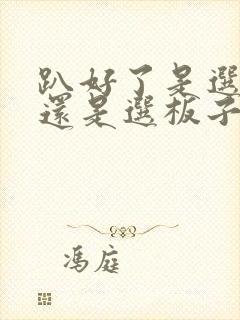 趴好了是選
還是選板子
馮庭